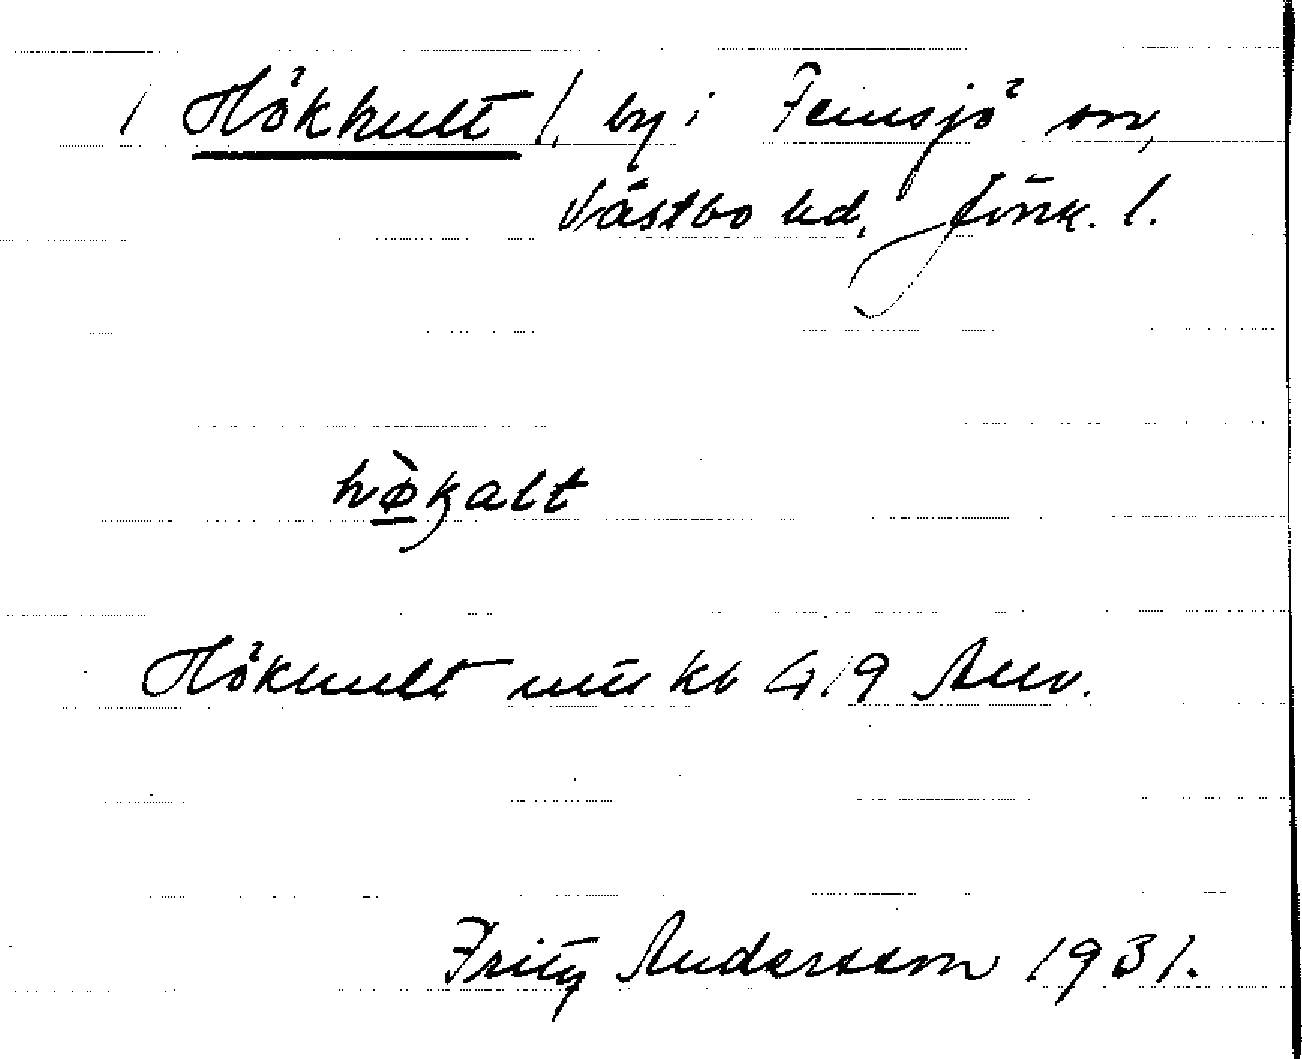 / Hökhult /, by i Femsjö sn,
Västbo hd, Jönk. l.
hø̀kalt
Hökhult mtl kb G 19 Anv.
Fritz Andersson 1931.